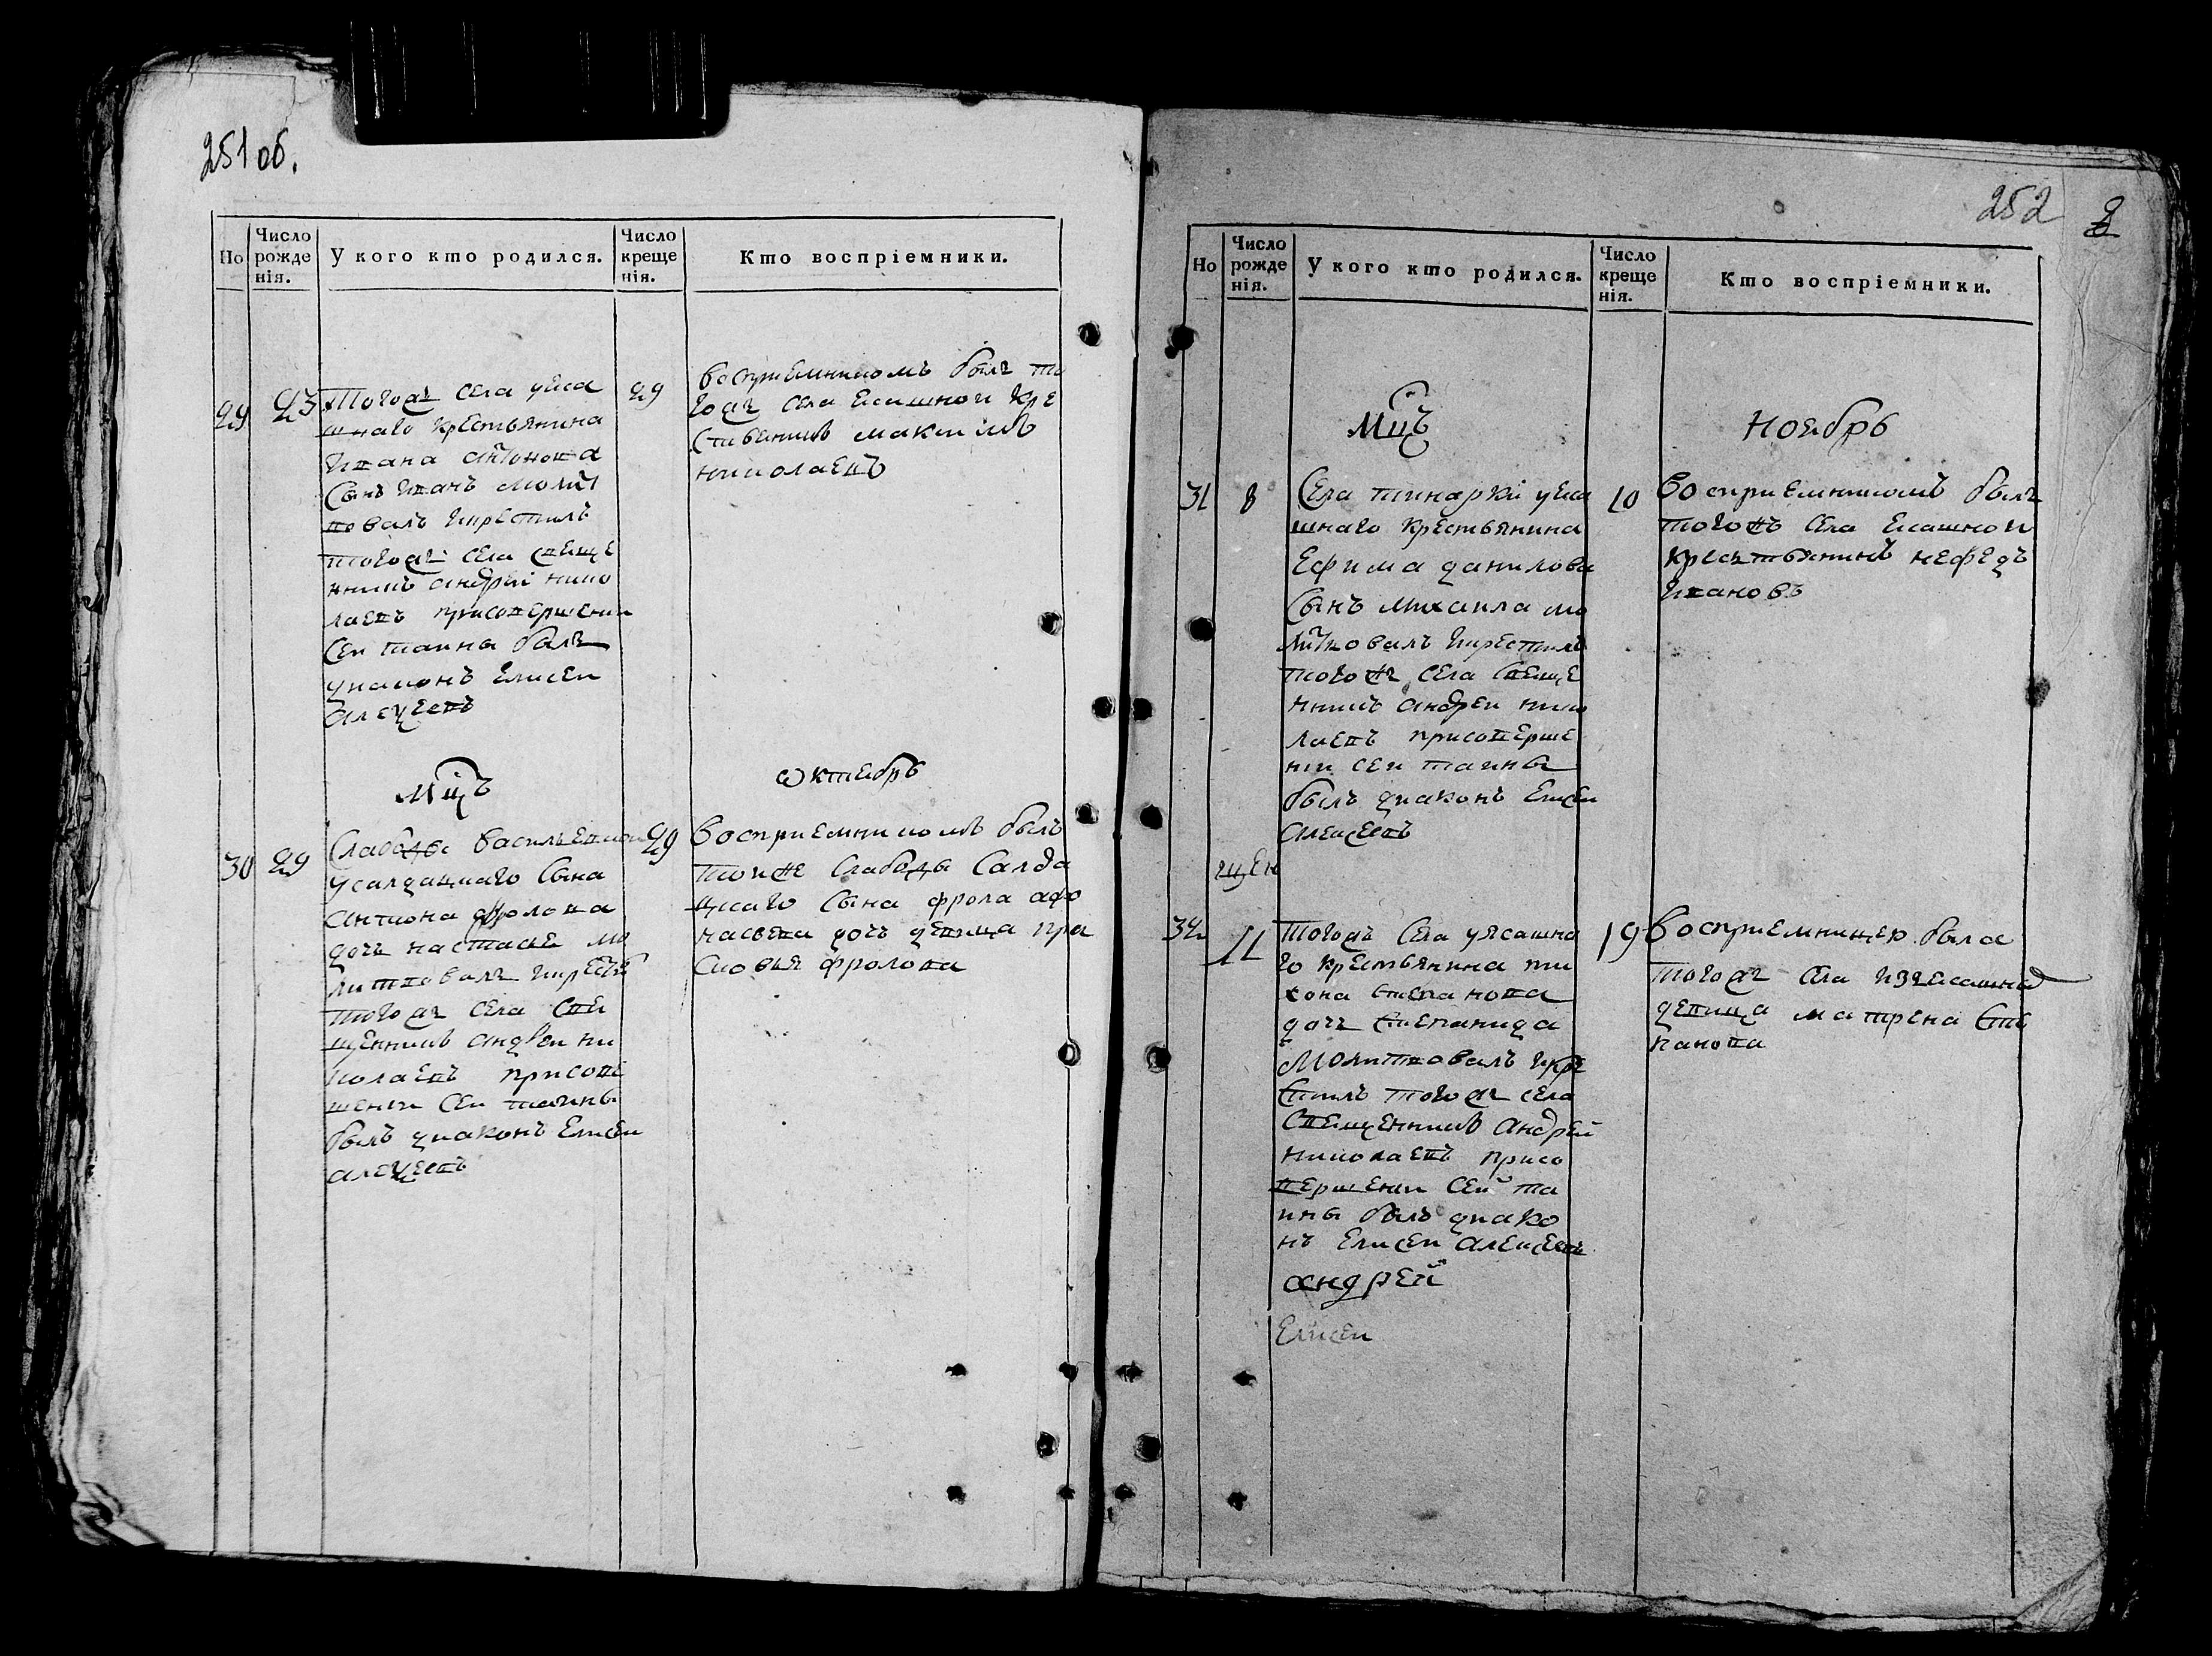 251 об.
Но
Число рожденія.
У кого кто родился.
Число крещенія.
Кто воспріемники.
29
23
Тогож села уяса
шнаго крестьянина
Ивана антонова
сынъ Иванъ молит
вовалъ икрестилъ
тогож села свеще
нникъ андрей нико
лаевъ присовершении
сеи таины былъ
диаконъ Елисеи
алексеевъ
29
восприемникомъ былъ то
гож села ясашной кре
стьенинъ максимъ
николаевъ
Мцъ
октебрь
30
29
Слабоды васильевской
усалдацкаго сына
антиона фролова
дочь настасье мо
литвовалъ икрести
тогож села све
щенникъ андреи ни
колаевъ присове
шении сеи таины
былъ диаконъ Елисеи
алексеевъ
29
восприемникомъ былъ
тоиже слабоды салда
цкаго сына фрола афо
насьева дочь девица пра
сковья фролова
252
Но
Число рожденія.
У кого кто родился.
Число крещенія.
Кто воспріемники.
Мцъ
Ноебрь
31
8
Села тинарки уяса
шнаго крестьянина
Ефима данилова
сынъ михаила мо
литвовалъ икрестилъ
тогож села свеще
нникъ андреи нико
лаевъ присоверше
нии сеи таины
былъ диаконъ Елисеи
алексеевъ
10
восприемникомъ былъ
тогожъ села ясашнои
крестьянинъ нефедъ
Ивановъ
щен
32
11
тогожъ села уясашна
го крестьянина ти
хона степанова
дочь степанида
молитвовалъ икре
стилъ тогож села
свещенникъ андрей
николаевъ присо
вершении сей та
ины былъ диако
нъ Елисеи алексеевъ
андрей
Елисеи
19
восприемницею была
тогож села изъясашнаго
девица матрена сте
панова